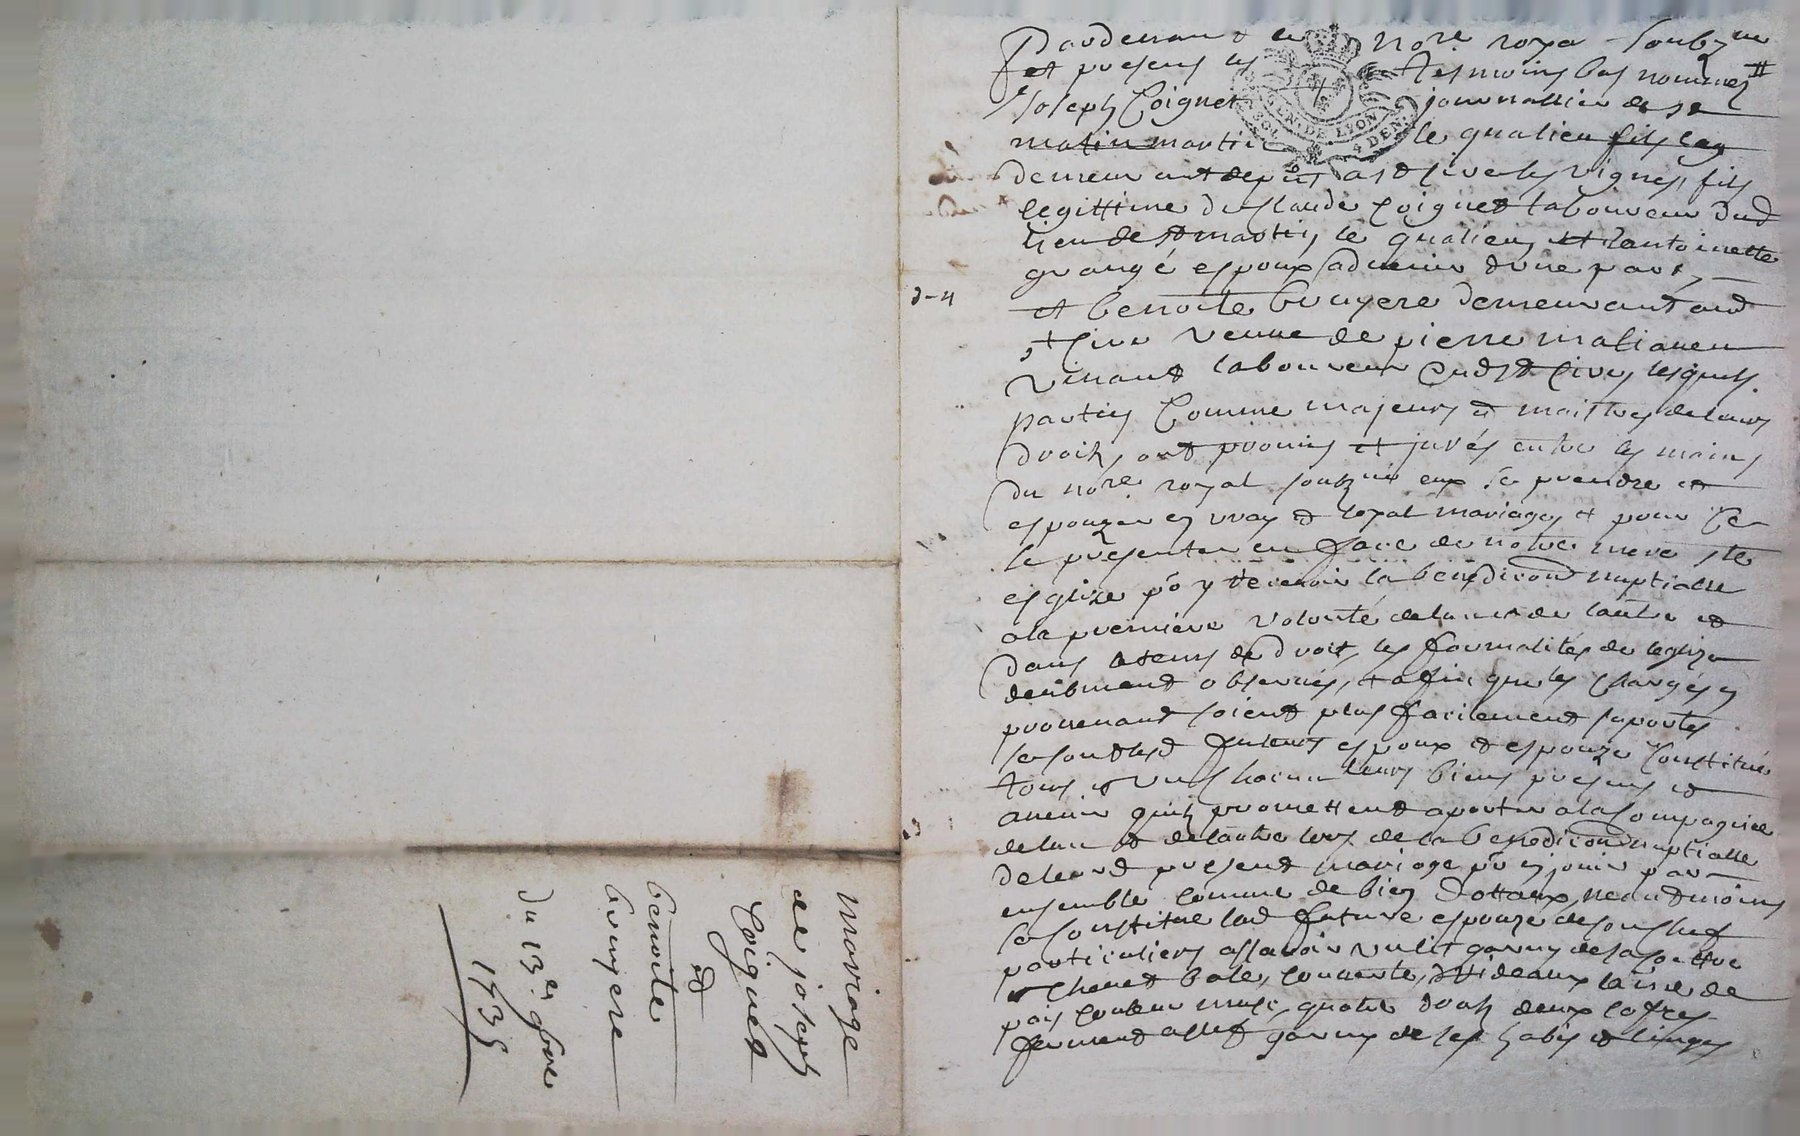 Pardevant le nore. royal soubzne
et presens les tesmoins bas nommez
Joseph Coignet journallier de St
martin le qualieu
demeurant depuis a St Sire les vignes, fils
legittime de Claude Coignet laboureur dud
lieu de St martin le qualieu, et d'antoinette
grangé espoux advenir dune part,
et benoite bruyere demeurant aud
St Sire veuve de pierre
vivant laboureur dud St Sire, lesquels
parties Comme majeurs et maistres de leurs
droits, ont promis et jurés entre les mains
du nore. royal soubzné eux se prendre et
espouzer en vray et loyal mariage, et pour Ce
se presenter en face de notre mere ste
esglize po. y recevoir la benediction nuptialle
a la premiere volonté de lun et de lautre et
dans le tems de droit, les formalités de leglize
deübment observés, et afin que les Charges en
provenant soient plus facilement suportés
se sont lesd futeurs espoux et espouze Constitués
tous et un Chacun leurs biens presens et
avenir quils promettent aporter a la Compagnie
de lun et de lautre lors de la benediction nuptialle
de leurd present mariage po. en jouir par
ensemble comme de bien dottaux, neantmoins
se Constitue lad future espouze de son Chef
particuliers assavoir un lit garny de sa Coittre
Chevet bale, couverte, et rideaux laine de
pais Couleur quatre draps deux Cofres
fermant a clef garny de ses habis et linges
3-4
GEN. DE LYON
SOL 4 DEN.
mariage
de joseph
Coignet
et
benoite
bruyere
du 13e 9bre
1735